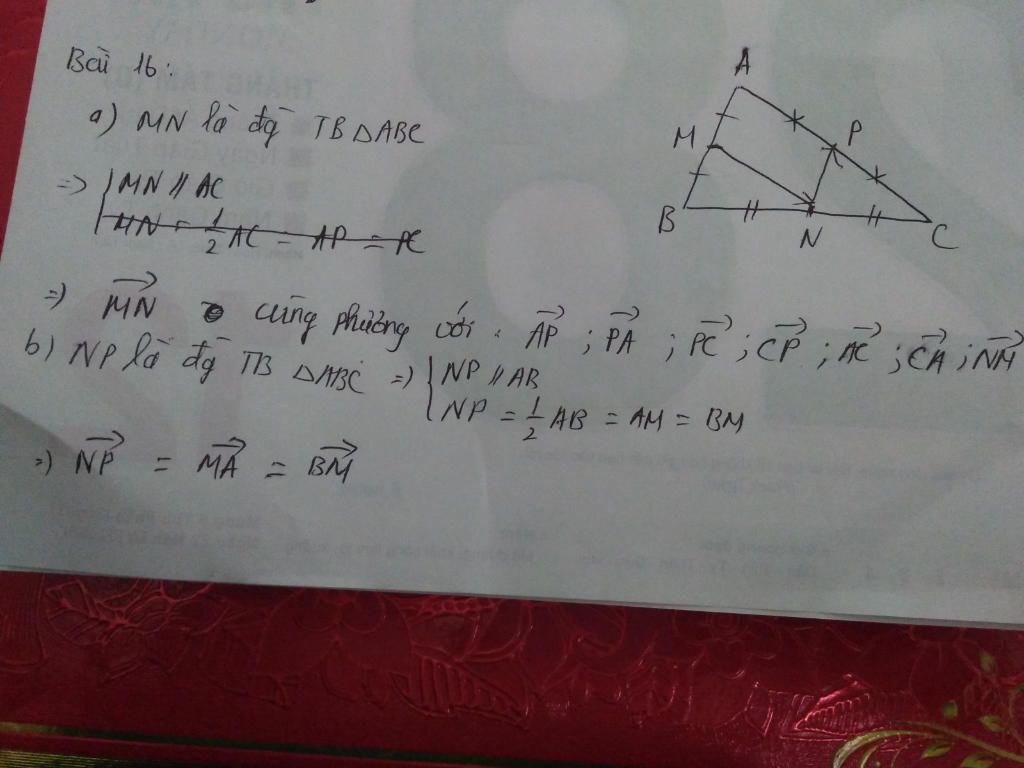 Bài 16:
a) MN là đg TB △ABC
=> { MN // AC
MN = 1/2 AC = AP = PC
=> MN⃗ cùng phương với: AP⃗ ; PA⃗ ; PC⃗ ; CP⃗ ; AC⃗ ; CA⃗ ; NM⃗
b) NP là đg TB △ABC => { NP // AB
NP = 1/2 AB = AM = BM
=> NP⃗ = MA⃗ = BM⃗
A
M
P
B
N
C